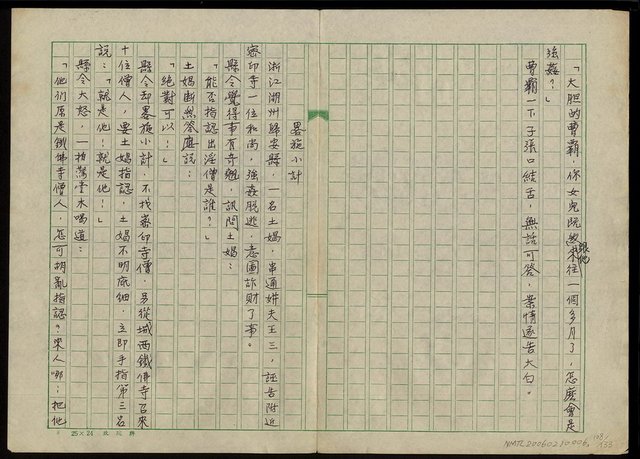 「大胆的曹霸，你女兒既然跟他來往一個多月了，怎麼會是
強姦？」
曹霸一下子張口結舌，無話可答，案情遂告大白。
略施小計
浙江湖州歸安縣，一名土娼，串通姘夫王三，誣告附近
密印寺一位和尚，強姦脫逃，意圖詐財了事。
縣令覺得事有奇蹺，訊問土娼：
「能否指認出淫僧是誰？」
土娼斷然答應說：
「絕對可以！」
縣令却畧施小計，不找密印寺僧，另從城西鐵佛寺召來
十位僧人，要土娼指認，土娼不明底細，立即手指第三名
說：「就是他！就是他！」
縣令大怒，一拍驚堂木喝道：
「他們原是鐵佛寺僧人，怎可胡亂指認？來人哪：把他
25×24
NMTL20060210006
108/
133